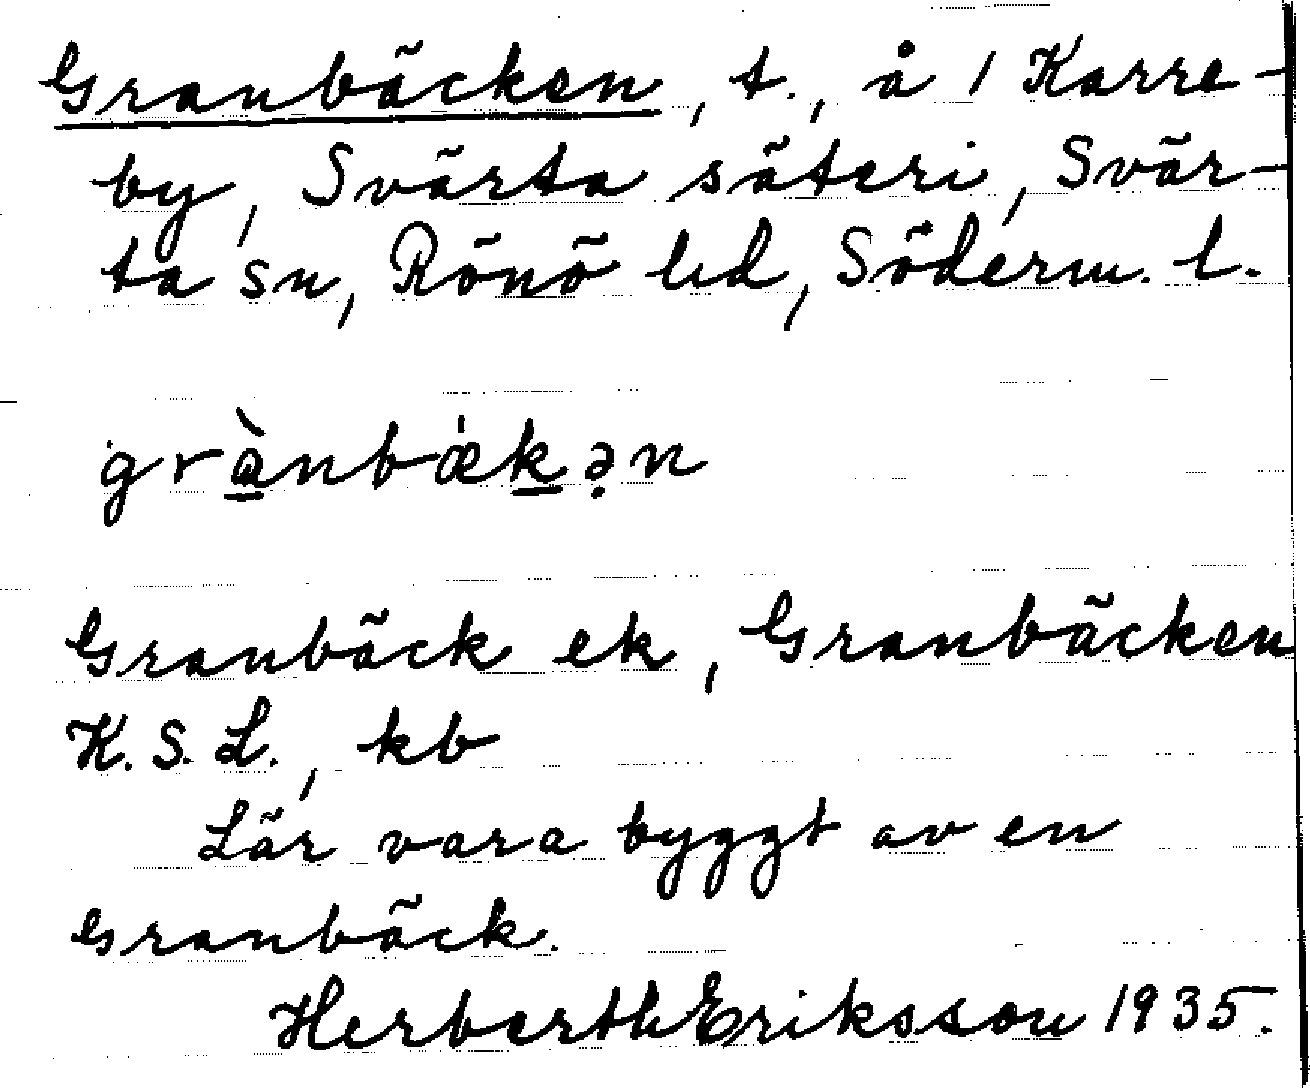 Granbäcken, t., å 1 Karre-
by, Svärta säteri, Svär-
ta sn, Rönö hd, Söderm. l.
grà̲nbæ̍k̲ə̣n
Granbäck ek, Granbäcken
K.S.L., kb
Lär vara byggt av en
Granbäck.
Herberth Eriksson 1935.